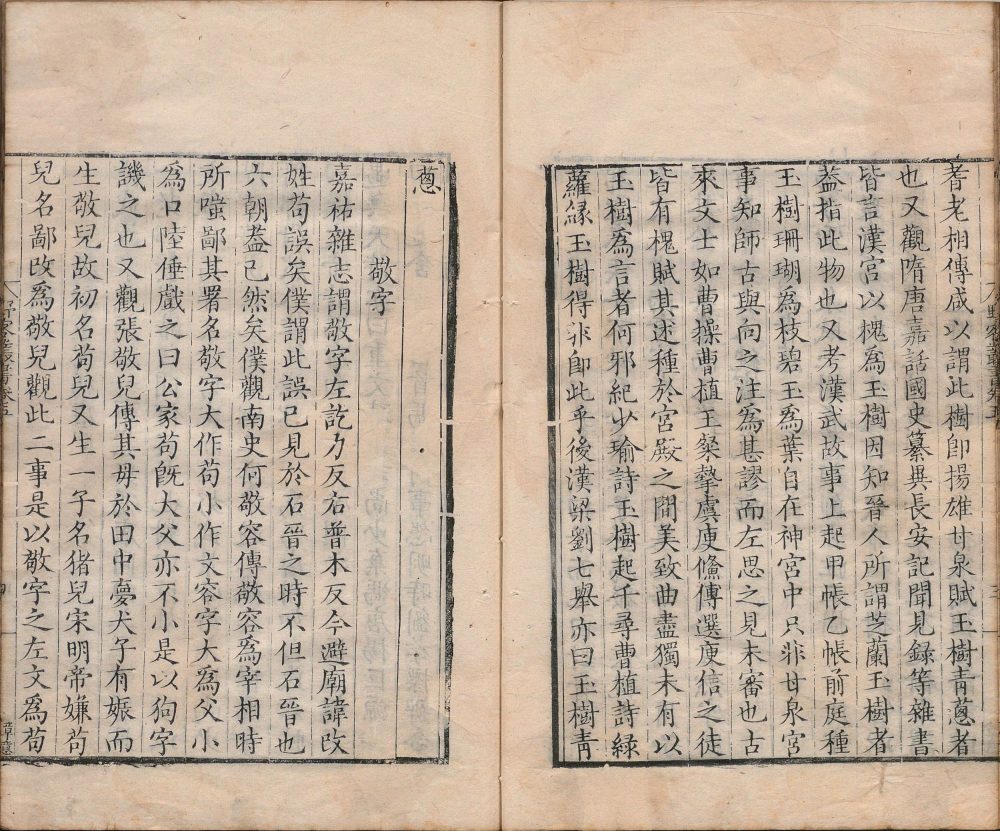 耆老相傳咸以謂此樹即揚雄甘泉賦玉樹青蔥者
也又觀隋唐嘉話國史纂異長安記聞見録等雜書
皆言漢宫以槐爲玉樹因知晉人所謂芝蘭玉樹者
葢指此物也又考漢武故事上起甲帳乙帳前庭種
玉樹珊瑚爲枝碧玉爲葉自在神宫中只非甘泉宫
事知師古與向之注爲甚謬而左思之見未審也古
來文士如曹操曹植王粲摯虞庾儵傅選庾信之徒
皆有槐賦其述種於宫殿之間美致曲盡獨未有以
玉樹爲言者何邪紀少瑜詩玉樹起千尋曹植詩緑
蘿緣玉樹得非即此乎後漢梁劉七舉亦曰玉樹青
蔥
敬字
嘉祐雜志謂敬字左訖力反右普木反今避廟諱改
姓苟誤矣僕謂此誤已見於石晉之時不但石晉也
六朝葢已然矣僕觀南史何敬容傳敬容爲宰相時
所嗤鄙其署名敬字大作苟小作文容字大爲父小
爲口陸倕戲之曰公家苟旣大父亦不小是以狗字
譏之也又觀張敬兒傳其母於田中夢犬子有娠而
生敬兒故初名苟兒又生一子名猪兒宋明帝嫌苟
兒名鄙改爲敬兒觀此二事是以敬字之左文爲苟